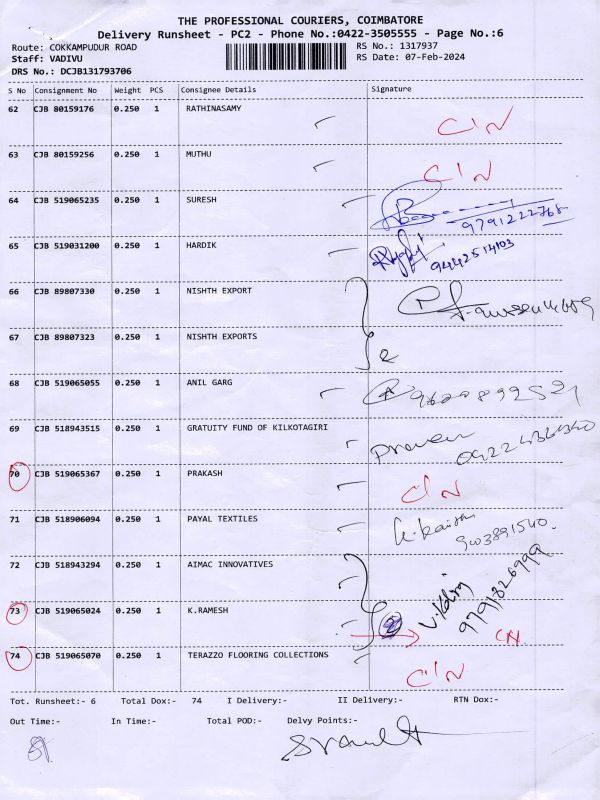 THE PROFESSIONAL COURIERS, COIMBATORE
Delivery Runsheet - PC2 - Phone No.:0422-3505555 - Page No.:6
Route: COKKAMPUDUR ROAD RS No.: 1317937
Staff: VADIVU RS Date: 07-Feb-2024
DRS No.: DCJB131793706
S No Consignment No Weight PCS Consignee Details Signature
62 CJB 80159176 0.250 1 RATHINASAMY C/N
63 CJB 80159256 0.250 1 MUTHU C/N
64 CJB 519065235 0.250 1 SURESH 9791222768
65 CJB 519031200 0.250 1 HARDIK 9442514103
66 CJB 89807330 0.250 1 NISHTH EXPORT
67 CJB 89807323 0.250 1 NISHTH EXPORTS
68 CJB 519065055 0.250 1 ANIL GARG
69 CJB 518943515 0.250 1 GRATUITY FUND OF KILKOTAGIRI Praveen
70 CJB 519065367 0.250 1 PRAKASH C/N
71 CJB 518906094 0.250 1 PAYAL TEXTILES
72 CJB 518943294 0.250 1 AIMAC INNOVATIVES 9791826999
73 CJB 519065024 0.250 1 K.RAMESH C/N
74 CJB 519065070 0.250 1 TERAZZO FLOORING COLLECTIONS C/N
Tot. Runsheet:- 6 Total Dox:- 74 I Delivery:- II Delivery:- RTN Dox:-
Out Time:- In Time:- Total POD:- Delvy Points:-